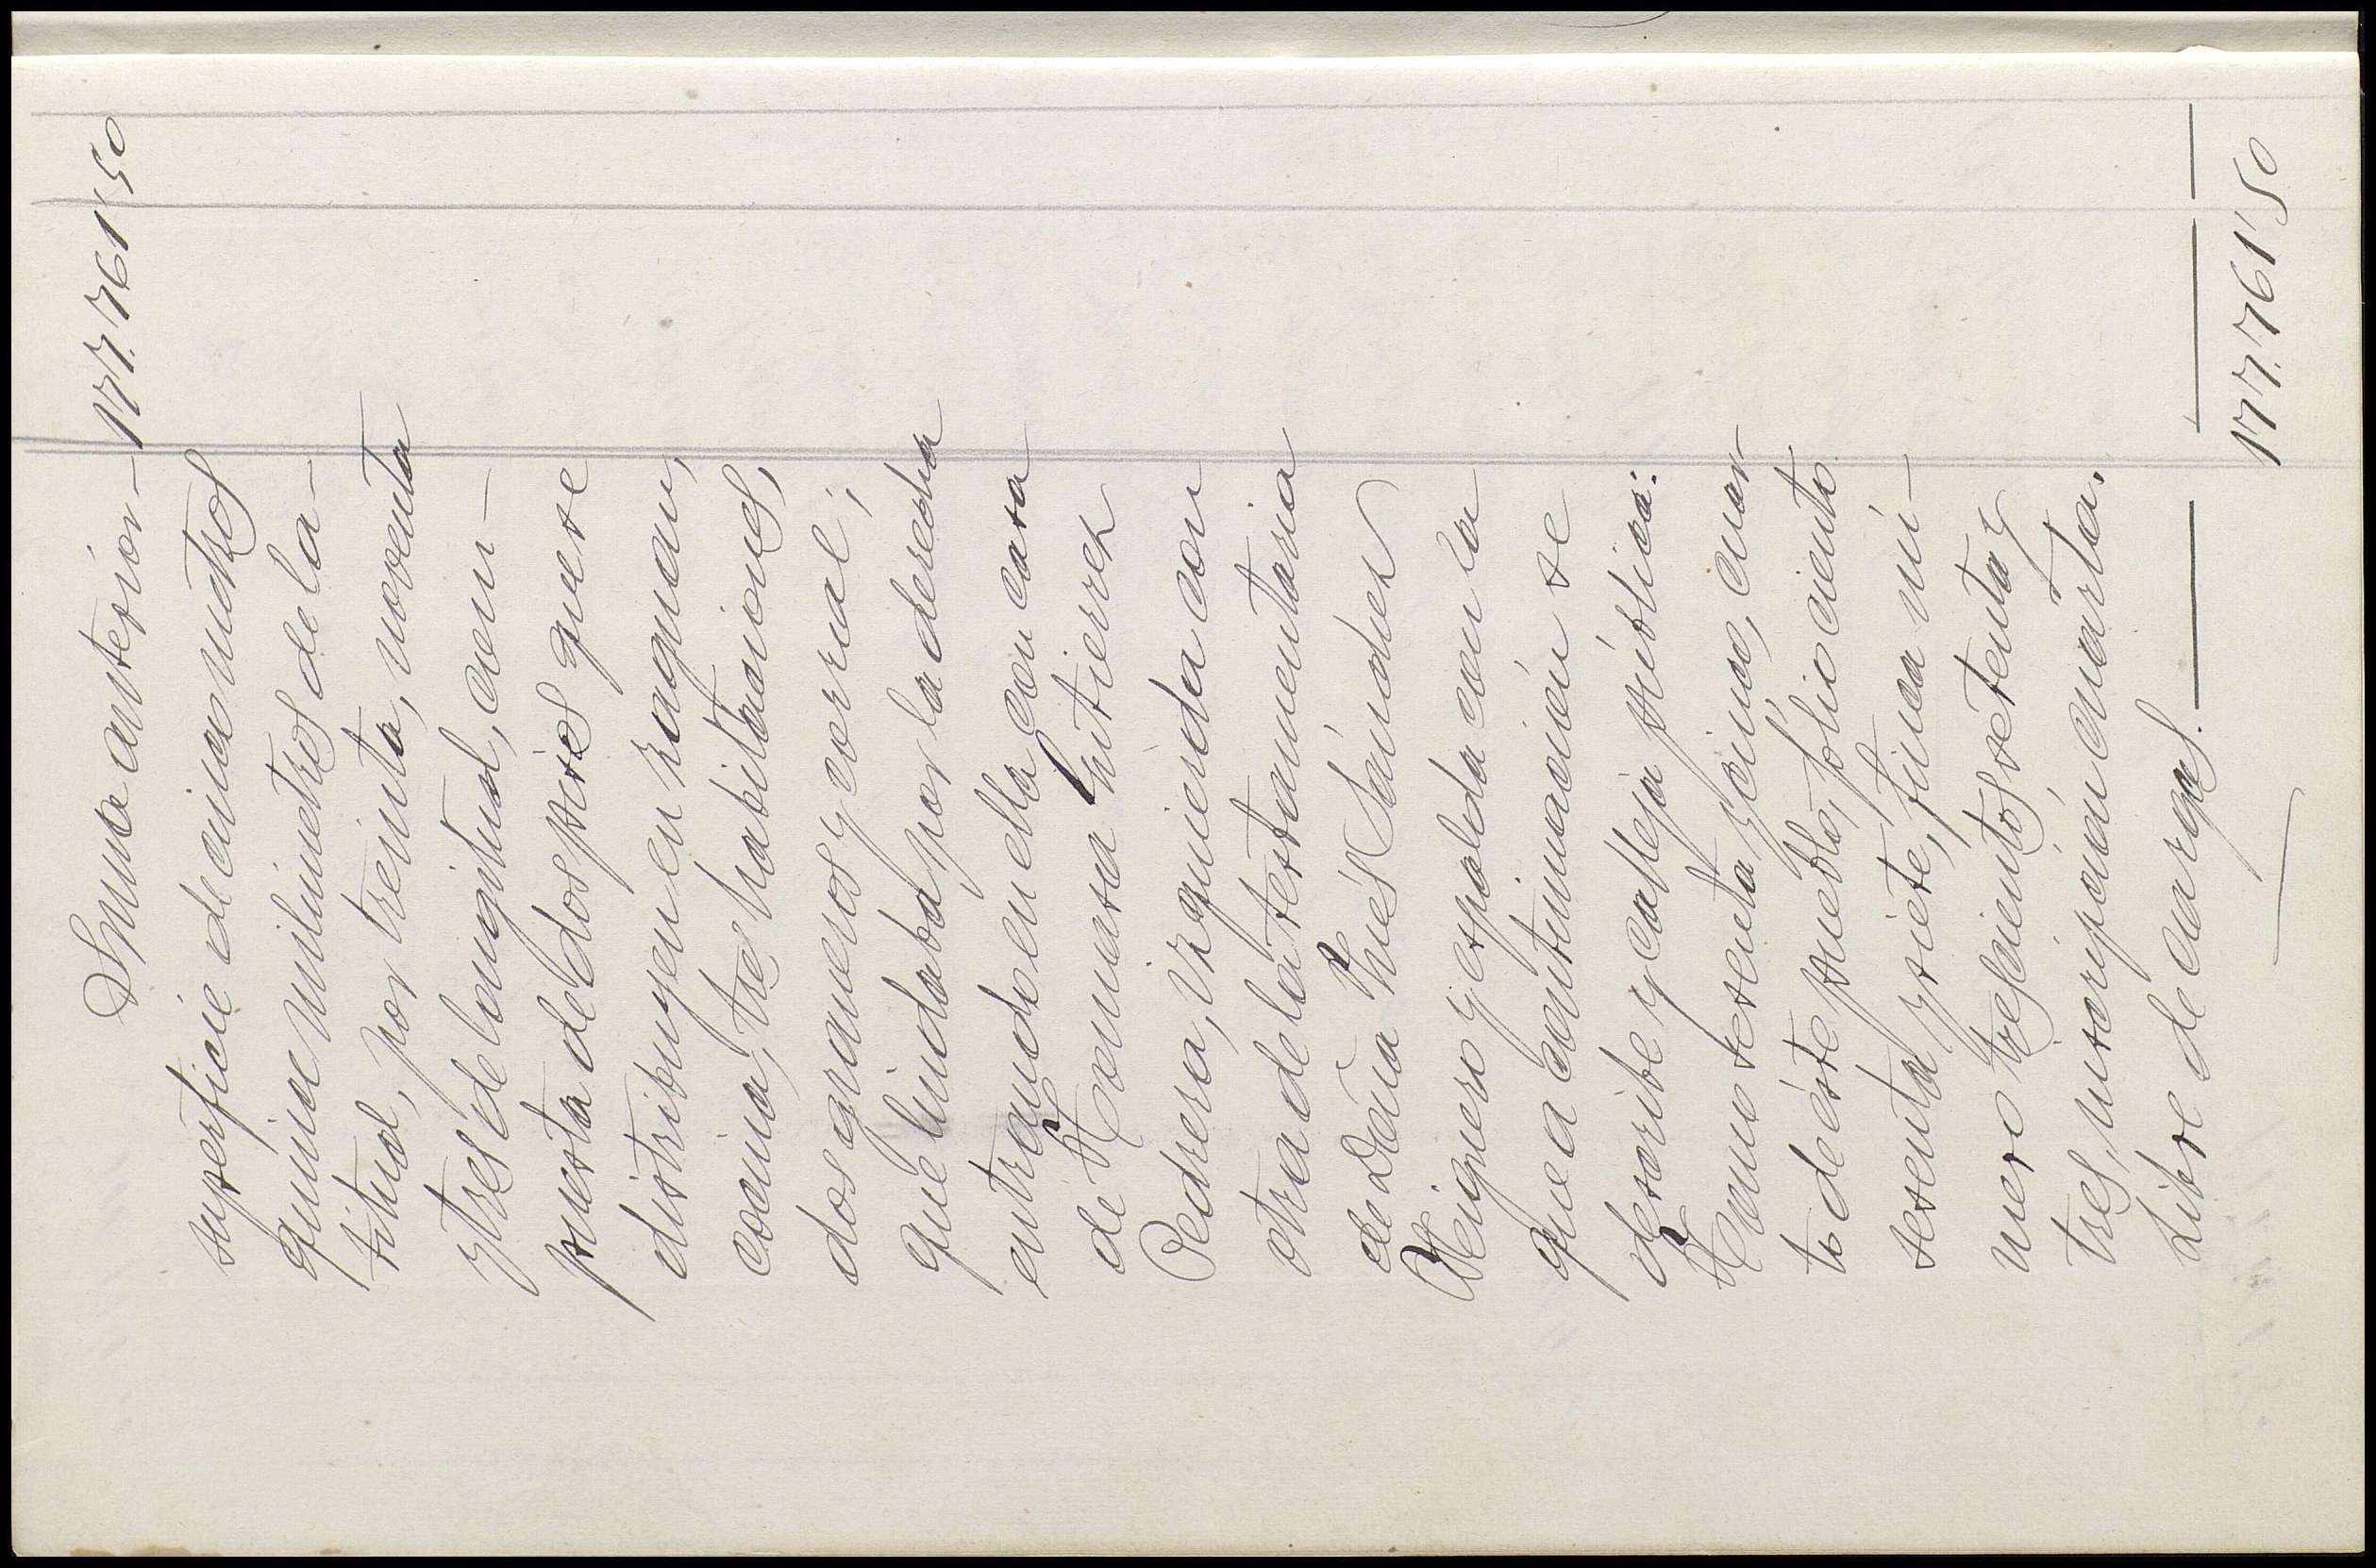 Suma anterior — 177.761'50
superficie de cinco metros
quince milimetros de la-
titud, por treinta, noventa
y tres de longitud, com-
puesta de dos pisos que se
distribuyen en zaguan,
cocina, tres habitaciones,
dos graneros y corral;
que lindaba por la derecha
entrando en ella con casa
de Tomasa Gutierrez
Pedrera, izquierda con
otra de la testamentaria
de Doña Inés Sánchez
Reiguero y espalda con la
que a continuación se
describe y calleja pública:
Tomo sesenta y cinco, cuar-
to de éste pueblo, folio ciento
sesenta y siete, finca nú-
mero trescientos setenta y
tres, inscripción cuarta.
Libre de cargas. — — —
177.761'50